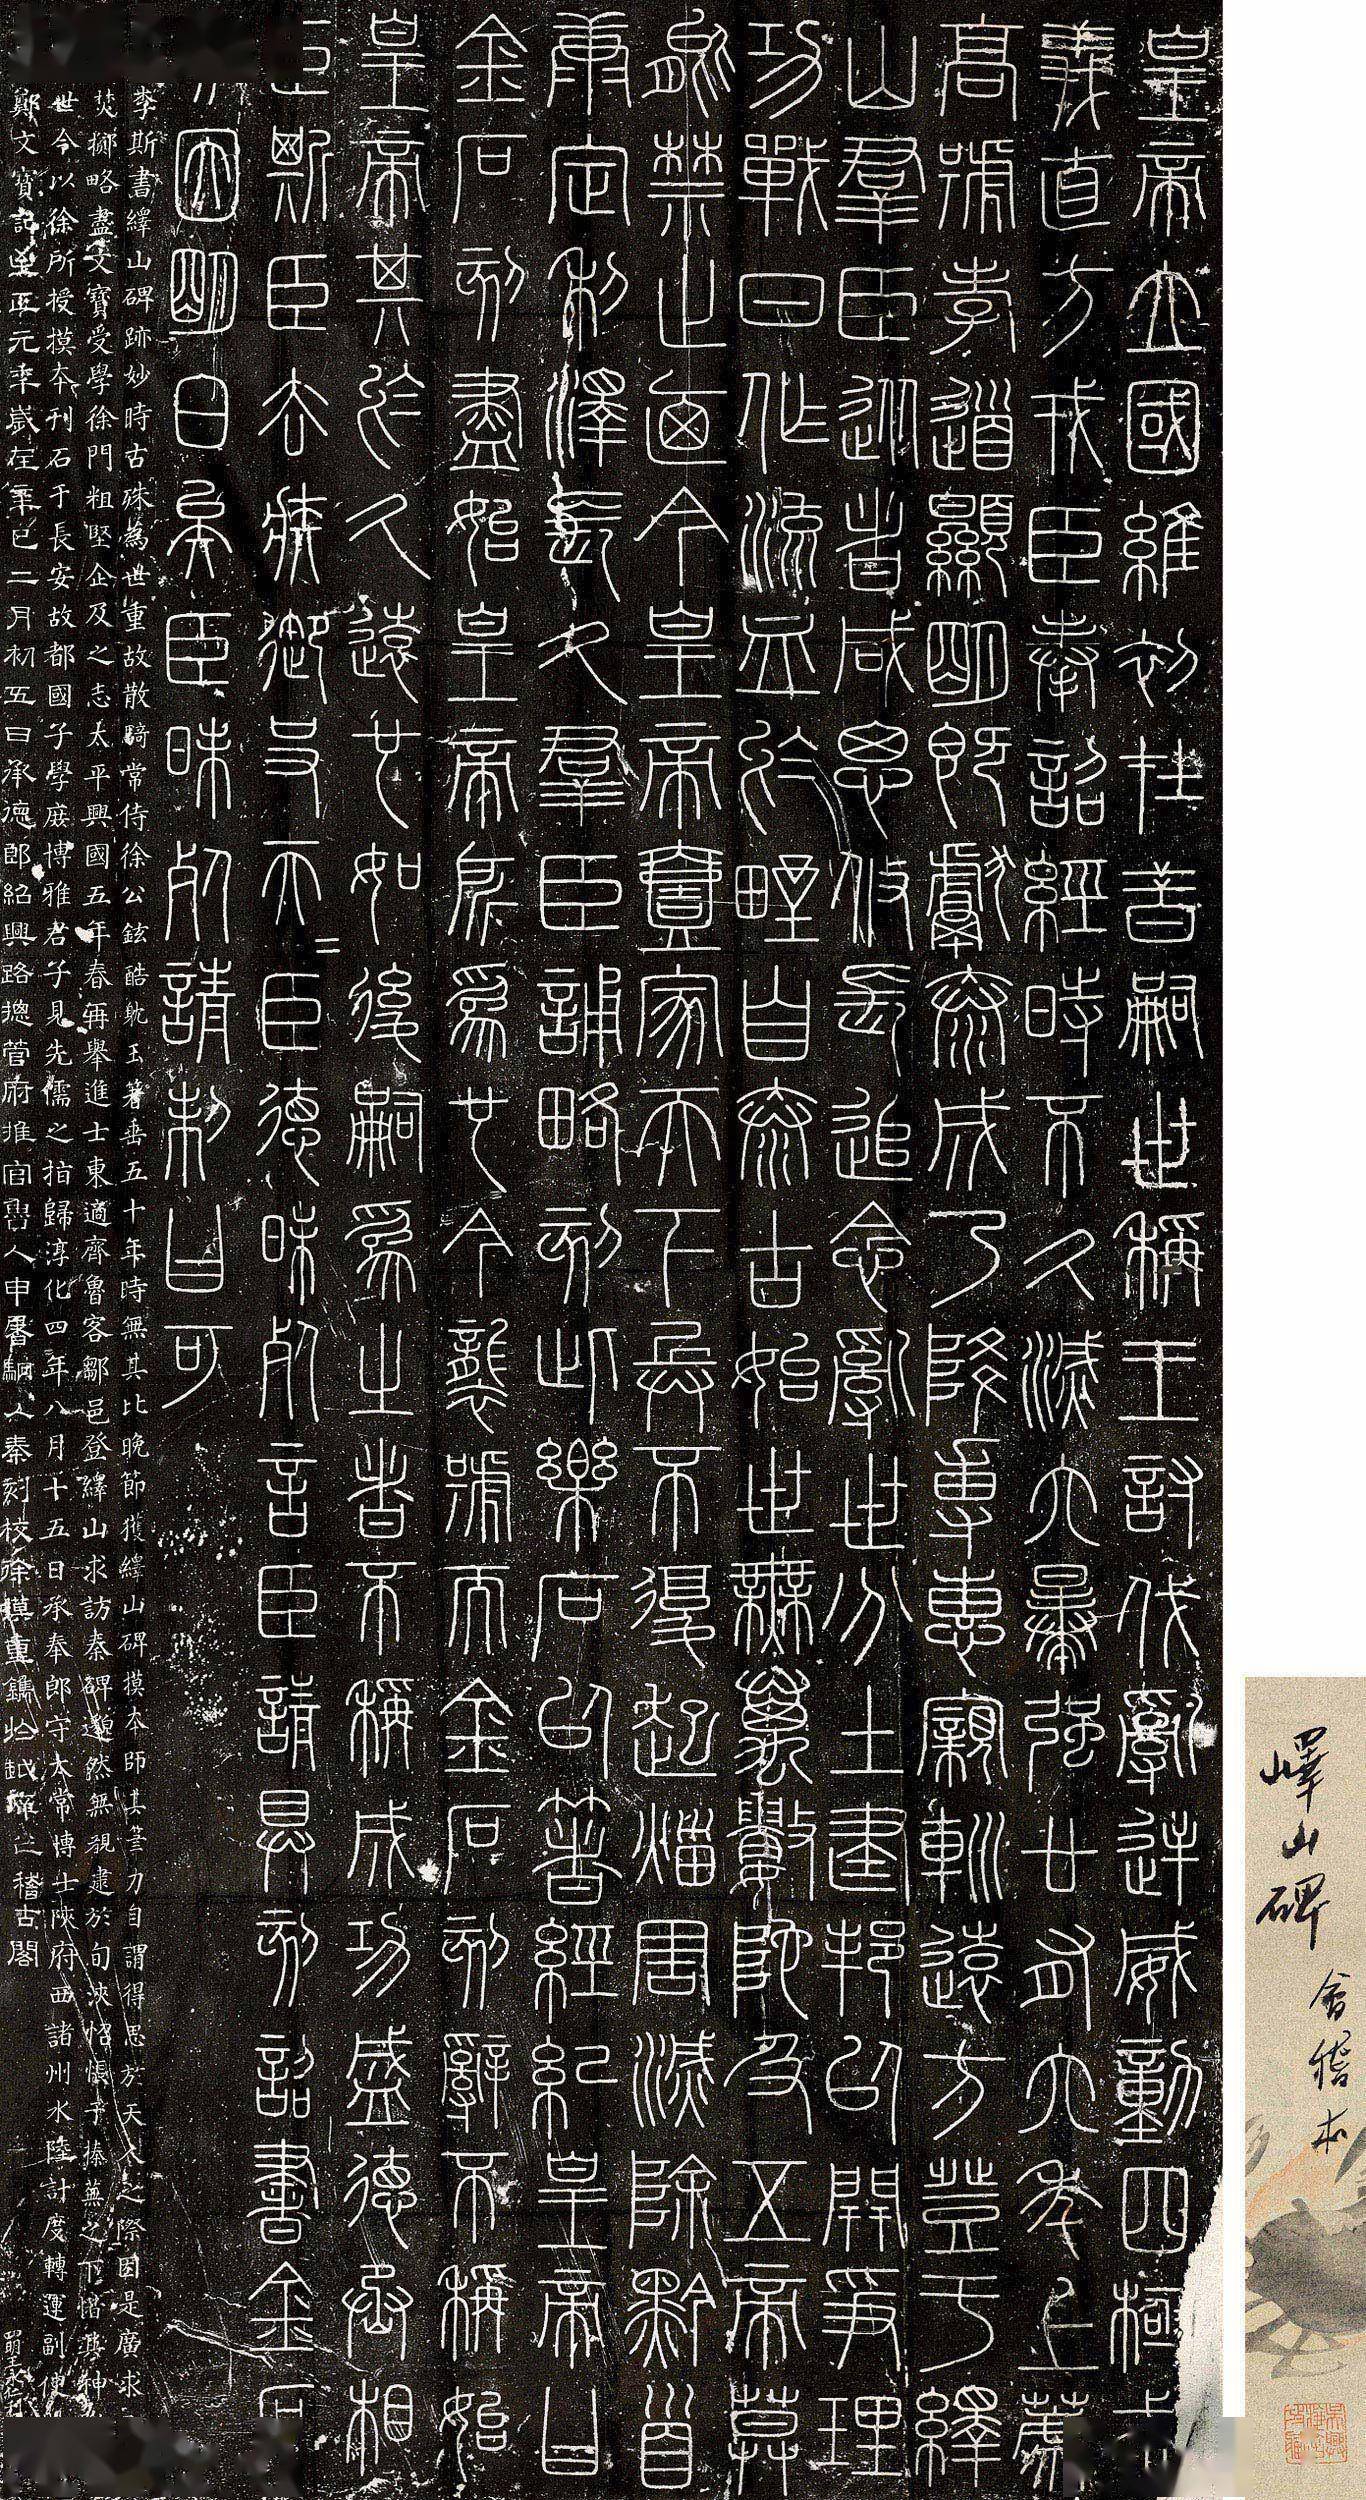 皇帝立國維初在昔嗣世稱王討伐亂逆威動四極武
義直方戎臣奉詔經時不久滅六暴強廿有六年上薦
高號孝道顯明既獻泰成乃降專惠親巡遠方登于繹
山羣臣從者咸思攸長追念亂世分土建邦以開爭理
功戰日作流血於野自泰古始世無萬數陀及五帝莫
能禁止廼今皇帝壹家天下兵不復起災害滅除黔首
康定利澤長久羣臣誦略刻此樂石以著經紀皇帝曰
金石刻盡始皇帝所為也今襲號而金石刻辭不稱始
皇帝其於久遠也如後嗣為之者不稱成功盛德丞相
臣斯臣去疾御史夫=臣德昧死言臣請具刻詔書金石
刻因明白矣臣昧死請制曰可
李斯書繹山碑跡妙時古殊為世重故散騎常侍徐公鉉酷躭玉箸垂五十年時無其比晚節獲繹山碑摸本師其筆力自謂得思於天人之際因是廣求
焚擲略盡文寶受學徐門粗堅企及之志太平興國五年春再舉進士東適齊魯客鄒邑登繹山求訪秦碑邈然無覩逮於旬浹怊悵于榛蕪之下惜其神
世今以徐所授摸本刊石于長安故都國子學庶博雅君子見先儒之指歸淳化四年八月十五日承奉郎守太常博士陝府西諸州水陸計度轉運副使
鄭文寶記至正元年歲在辛巳二月初五日承德郎紹興路總管府推官曹人申屠駉以秦刻校徐摸重鐫于越庠之稽古閣
嶧山碑
會稽本